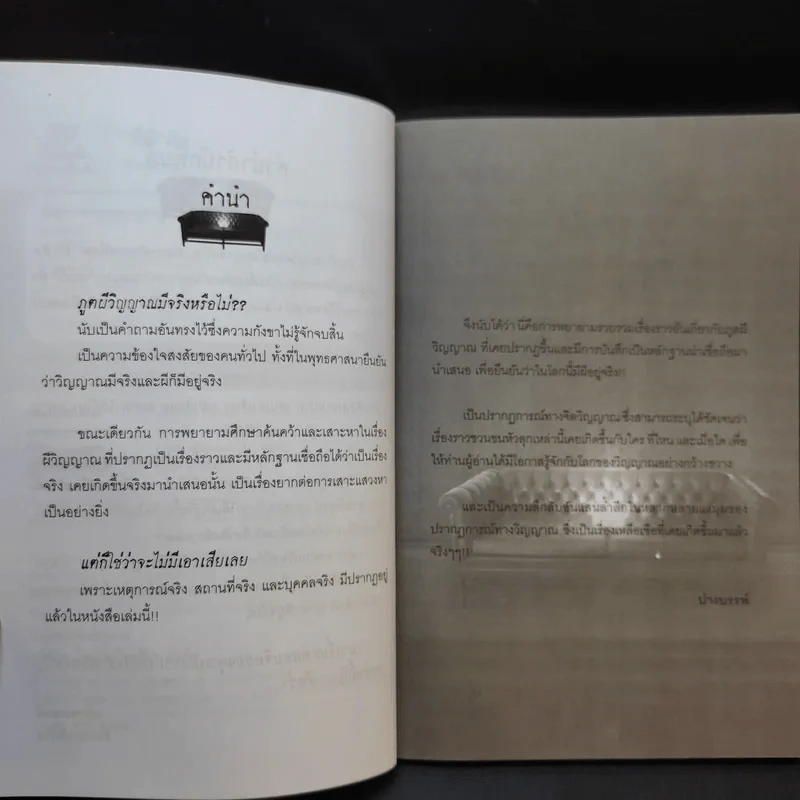 คำนำ
ภูตผีวิญญาณมีจริงหรือไม่??
นับเป็นคำถามอันทรงไว้ซึ่งความกังขาไม่รู้จักจบสิ้น
เป็นความข้องใจสงสัยของคนทั่วไป ทั้งที่ในพุทธศาสนายืนยัน
ว่าวิญญาณมีจริงและผีก็มีอยู่จริง
ขณะเดียวกัน การพยายามศึกษาค้นคว้าและเสาะหาในเรื่อง
ผีวิญญาณ ที่ปรากฏเป็นเรื่องราวและมีหลักฐานเชื่อถือได้ว่าเป็นเรื่อง
จริง เคยเกิดขึ้นจริงมานำเสนอนั้น เป็นเรื่องยากต่อการเสาะแสวงหา
เป็นอย่างยิ่ง
แต่ก็ใช่ว่าจะไม่มีเอาเสียเลย
เพราะเหตุการณ์จริง สถานที่จริง และบุคคลจริง มีปรากฏอยู่
แล้วในหนังสือเล่มนี้!!
จึงนับได้ว่า นี่คือการพยายามรวบรวมเรื่องราวอันเกี่ยวกับภูตผี
วิญญาณ ที่เคยปรากฏขึ้นและมีการบันทึกเป็นหลักฐานน่าเชื่อถือมา
นำเสนอ เพื่อยืนยันว่าในโลกนี้มีผีอยู่จริง!!
เป็นปรากฏการณ์ทางจิตวิญญาณ ซึ่งสามารถระบุได้ชัดเจนว่า
เรื่องราวชวนขนหัวลุกเหล่านี้เคยเกิดขึ้นกับใคร ที่ไหน และเมื่อใด เพื่อ
ให้ท่านผู้อ่านได้มีโอกาสรู้จักกับโลกของวิญญาณอย่างกว้างขวาง
และเป็นความลึกลับซับแสนล้ำลือในหลากหลายแง่มุมของ
ปรากฏการณ์ทางวิญญาณ ซึ่งเป็นเรื่องเหลือเชื่อที่เคยเกิดขึ้นมาแล้ว
จริงๆๆ!!
ปางบรรพ์